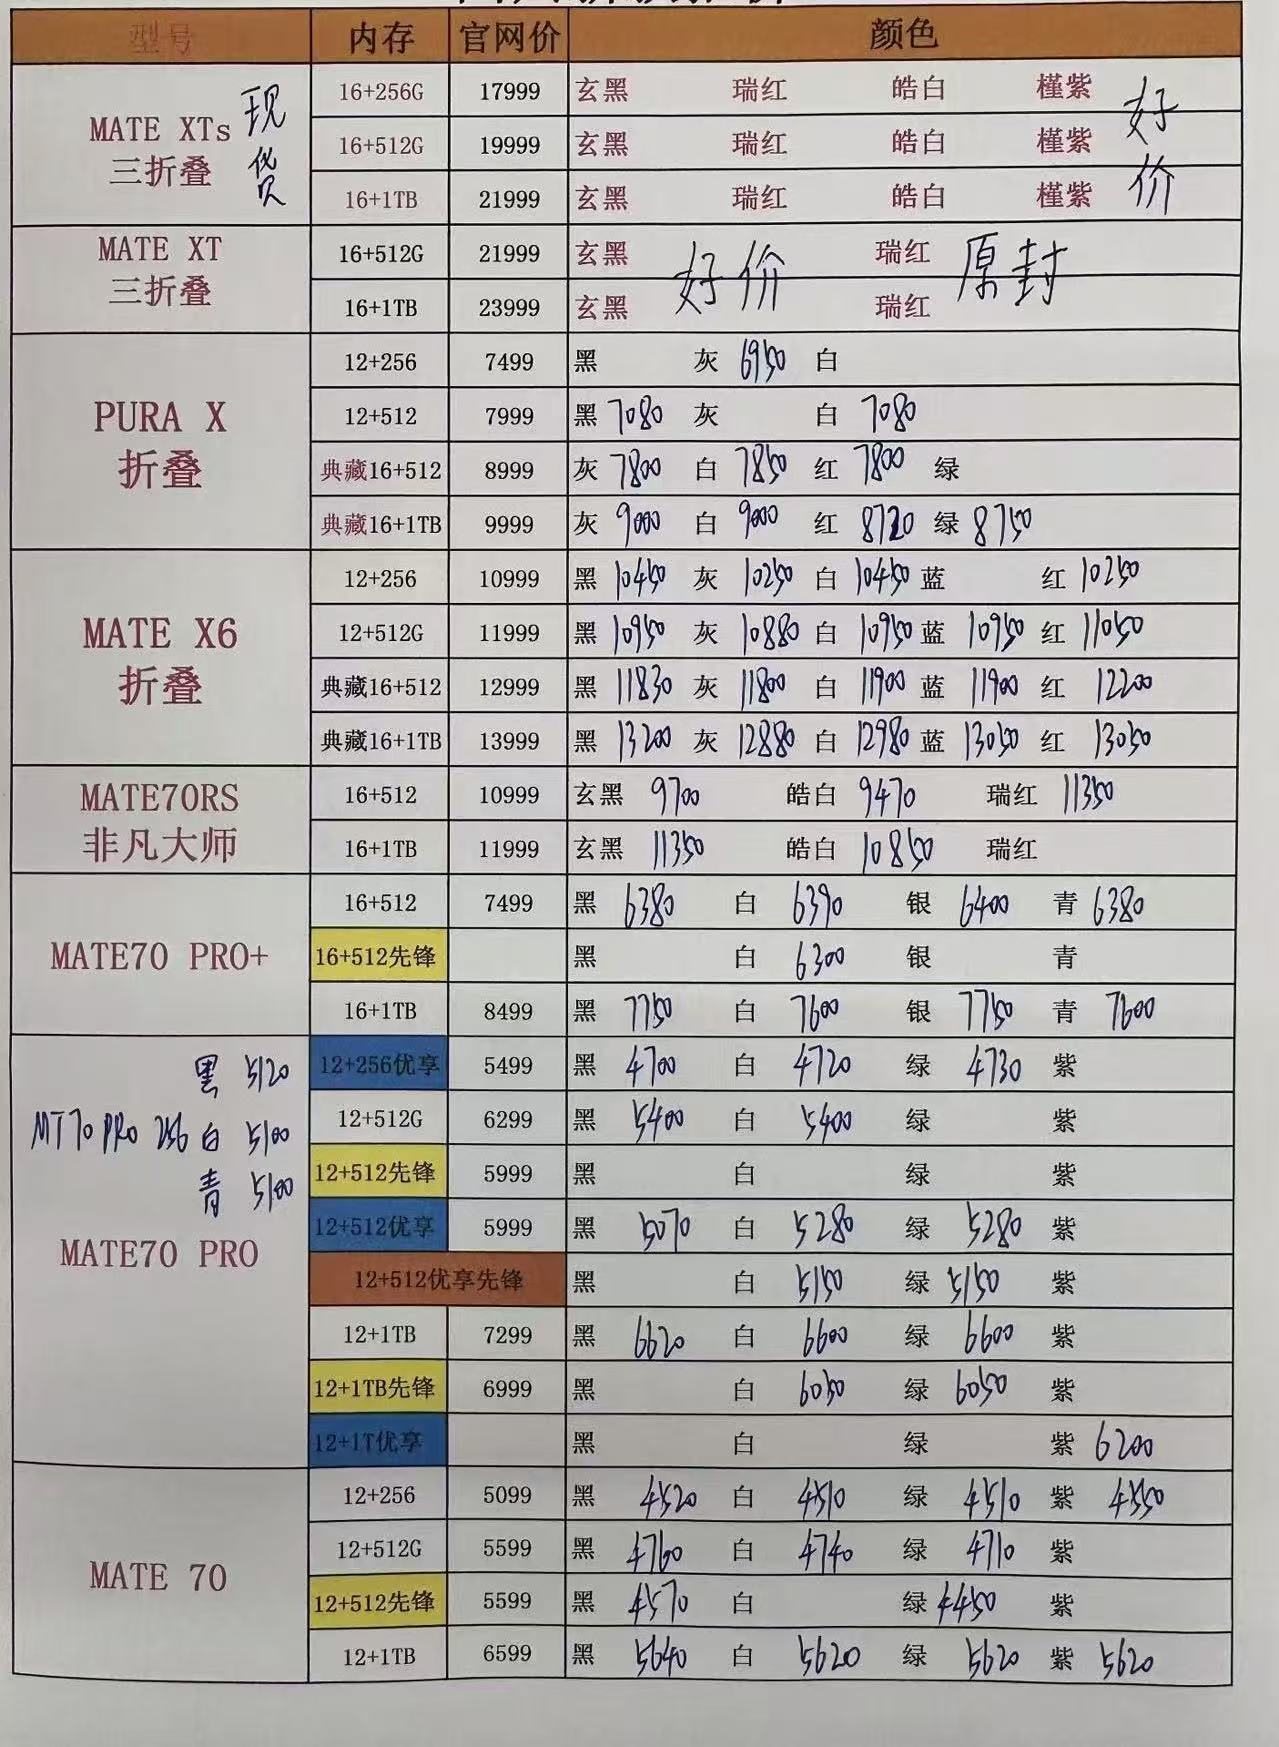 型号 内存 官网价 颜色
MATE XTs 三折叠 现货 16+256G 17999 玄黑 瑞红 皓白 槿紫 好价
16+512G 19999 玄黑 瑞红 皓白 槿紫
16+1TB 21999 玄黑 瑞红 皓白 槿紫
MATE XT 三折叠 16+512G 21999 玄黑 好价 瑞红 原封
16+1TB 23999 玄黑 瑞红
PURA X 折叠 12+256 7499 黑 灰 6950 白
12+512 7999 黑 7080 灰 白 7080
典藏16+512 8999 灰 7800 白 7850 红 7800 绿
典藏16+1TB 9999 灰 9000 白 9000 红 8720 绿 8750
MATE X6 折叠 12+256 10999 黑 10450 灰 10250 白 10450 蓝 红 10250
12+512G 11999 黑 10950 灰 10880 白 10950 蓝 10950 红 11050
典藏16+512 12999 黑 11830 灰 11800 白 11900 蓝 11900 红 12200
典藏16+1TB 13999 黑 13200 灰 12880 白 12980 蓝 13050 红 13050
MATE70RS 非凡大师 16+512 10999 玄黑 9700 皓白 9470 瑞红 11350
16+1TB 11999 玄黑 11350 皓白 10850 瑞红
MATE70 PRO+ 16+512 7499 黑 6380 白 6390 银 6400 青 6380
16+512先锋 黑 白 6300 银 青
16+1TB 8499 黑 7750 白 7600 银 7750 青 7600
黑 5120
MT70 PRO 256 白 5100
青 5100
MATE70 PRO 12+256优享 5499 黑 4700 白 4720 绿 4730 紫
12+512G 6299 黑 5400 白 5400 绿 紫
12+512先锋 5999 黑 白 绿 紫
12+512优享 5999 黑 5070 白 5280 绿 5280 紫
12+512优享先锋 黑 白 5150 绿 5150 紫
12+1TB 7299 黑 6620 白 6600 绿 6600 紫
12+1TB先锋 6999 黑 白 6050 绿 6050 紫
12+1T优享 黑 白 绿 紫 6200
MATE 70 12+256 5099 黑 4520 白 4510 绿 4510 紫 4550
12+512G 5599 黑 4760 白 4740 绿 4710 紫
12+512先锋 5599 黑 4570 白 绿 4450 紫
12+1TB 6599 黑 5640 白 5620 绿 5620 紫 5620